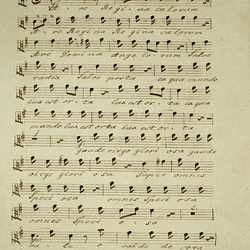 A: ve Regina celorum
A: ve Regina Regina celorum
Ave Domina Angelorum Salve
radix salve porta ex qua mundo
lux est orta lux est orta ex qua
mundo lux est orta lux est orta
gaude virgo gloriosa gaude
virgo gloriosa super omnes
speciosa omnes speciosa
omnes speciosa
va: le o valde decora